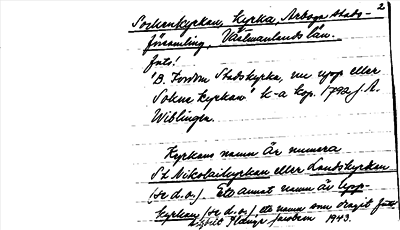 2
Sockenkyrkan, kyrka, Arboga stads-
församling, Västmanlands län.
foto!
"B. Stadskyrka, nu upp eller
Sokne kyrkan" k-a kop. 1792 f. A.
Wiblingen.
Kyrkans namn är numera
S:t Nikolaikyrkan eller Landskyrkan
(se d.o.) Ett annat namn är Upp-
kyrkan (se d.o.) ett namn som
1943.